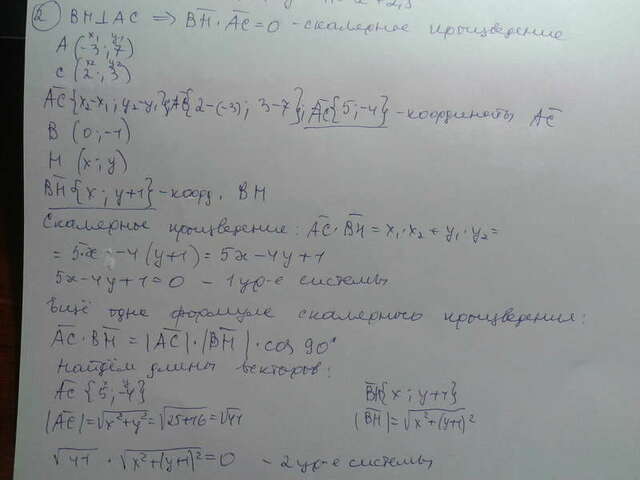 ② BH⊥AC ⇒ BH·AC=0 - скалярное произведение
A (-3; 7)
C (2; 3)
AC{x₂-x₁; y₂-y₁}; AC{2-(-3); 3-7}; AC{5;-4} - координаты AC
B (0;-1)
H (x; y)
BH{x; y+1} - коорд. BH
Скалярное произведение: AC·BH = x₁·x₂ + y₁·y₂ =
= 5·x -4(y+1) = 5x-4y+1
5x-4y+1=0 - 1 ур-е системы
Ещё одна формула скалярного произведения:
AC·BH = |AC|·|BH|·cos 90°
Найдём длины векторов:
AC{5;-4} BH{x; y+1}
|AC|=√x²+y²=√25+16=√41 |BH|=√x²+(y+1)²
√41 · √x²+(y+1)²=0 - 2 ур-е системы